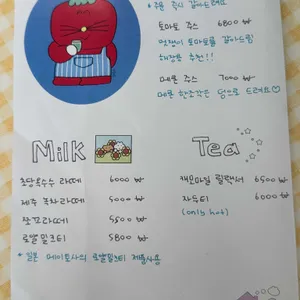 * 주문 즉시 갈아드려요
토마토 주스 6800 ₩
멋쟁이 토마토를 갈아드림
해장용 추천!!
메론 주스 7000 ₩
메론 한조각은 덤으로 드려요♡
Milk
초당옥수수 라떼 6000 ₩
제주 녹차라떼 5000 ₩
쪼꼬라떼 5500 ₩
로얄밀크티 5800 ₩
* 일본 메이토사의 로얄밀크티 제품사용
Tea
캐모마일 릴랙서 6500 ₩
자두티 6000 ₩
(only hot)